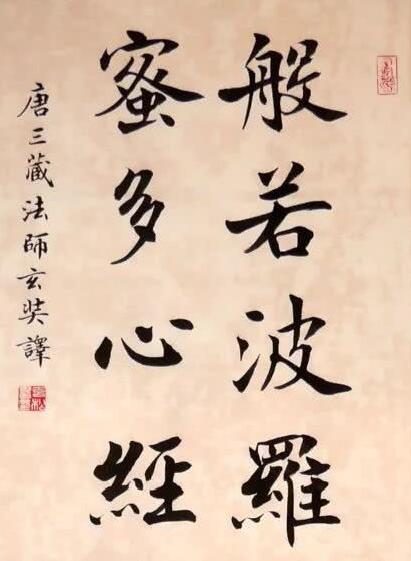 般若波羅
蜜多心經
唐三藏法師玄奘譯